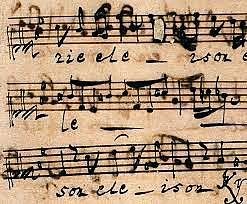 rie ele _ ison e
le _
son ele _ ison Ky